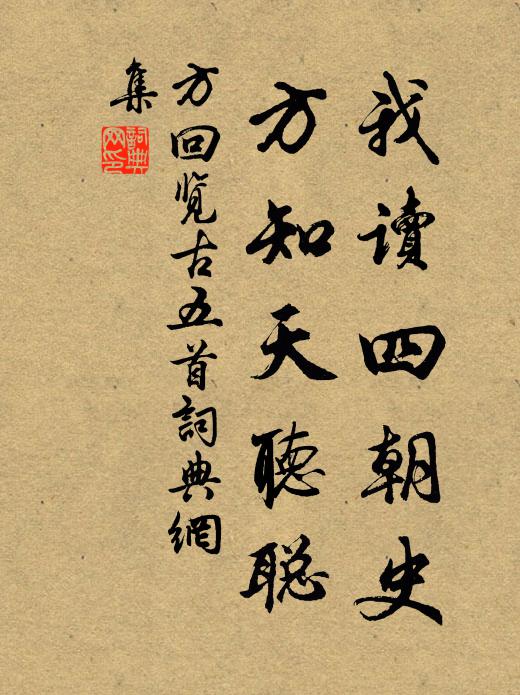 我讀四朝史
方知天聽聡
方回览古五首詞典網
集
詞典
网印